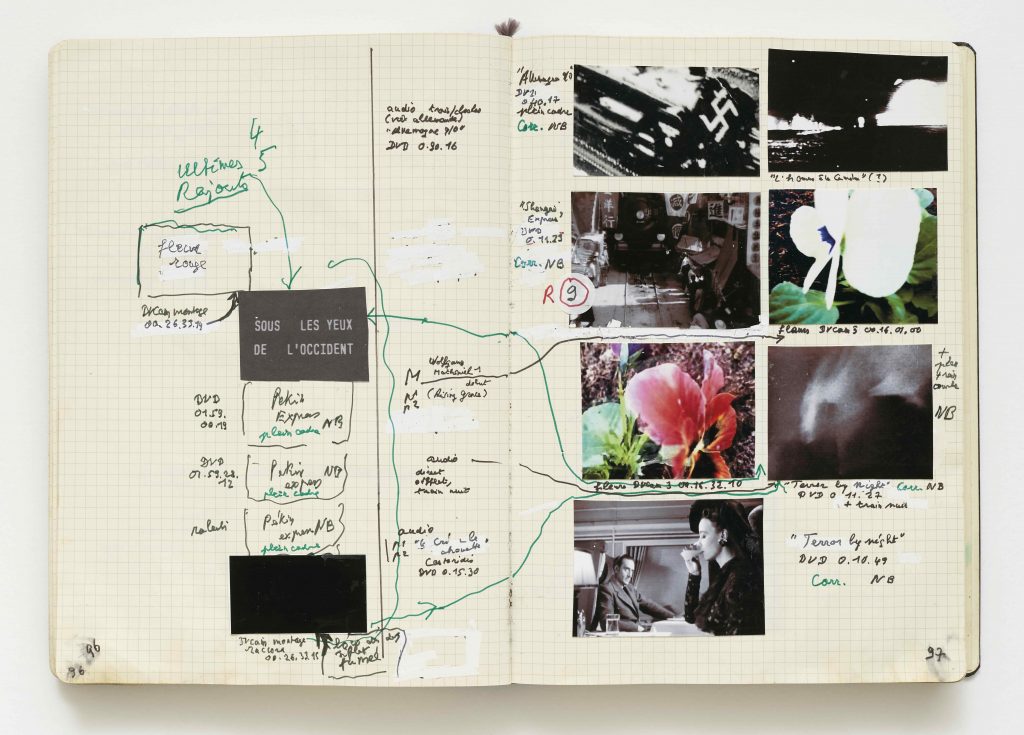 4
ultimes 5
Rajouts
fleuve
rouge
DVCam montage
00.26.33.14
SOUS LES YEUX
DE L'OCCIDENT
DVD
01.59.
00.19
Pékin
Express
NB
plein cadre
DVD
01.59.28.
12
Pékin
express
NB
plein cadre
ralenti
Pékin
express NB
plein cadre
DVCam montage
00.26.32
96
96
audio
(voix allemandes)
"Allemagne 9/0"
DVD 0.30.16
M
Wolfgang
début
(Rising grace)
audio
direct
train nuit
audio
"le cri de la
chouette"
DVD 0.15.30
"Allemagne 9/0"
DVD
0.40.17
plein cadre
Corr. NB
"L'homme à la Caméra" (?)
"Shangai
Express"
DVD
0.11.29
Corr. NB
R 9
進
洋
行
fleurs DVCam 3 00.16.01.00
+
plus
NB
fleurs DVCam 3 00.16.32.10
"Terror by Night" Corr. NB
DVD 0 11.27
+ train nuit
"Terror by night"
DVD 0.10.49
Corr. NB
97